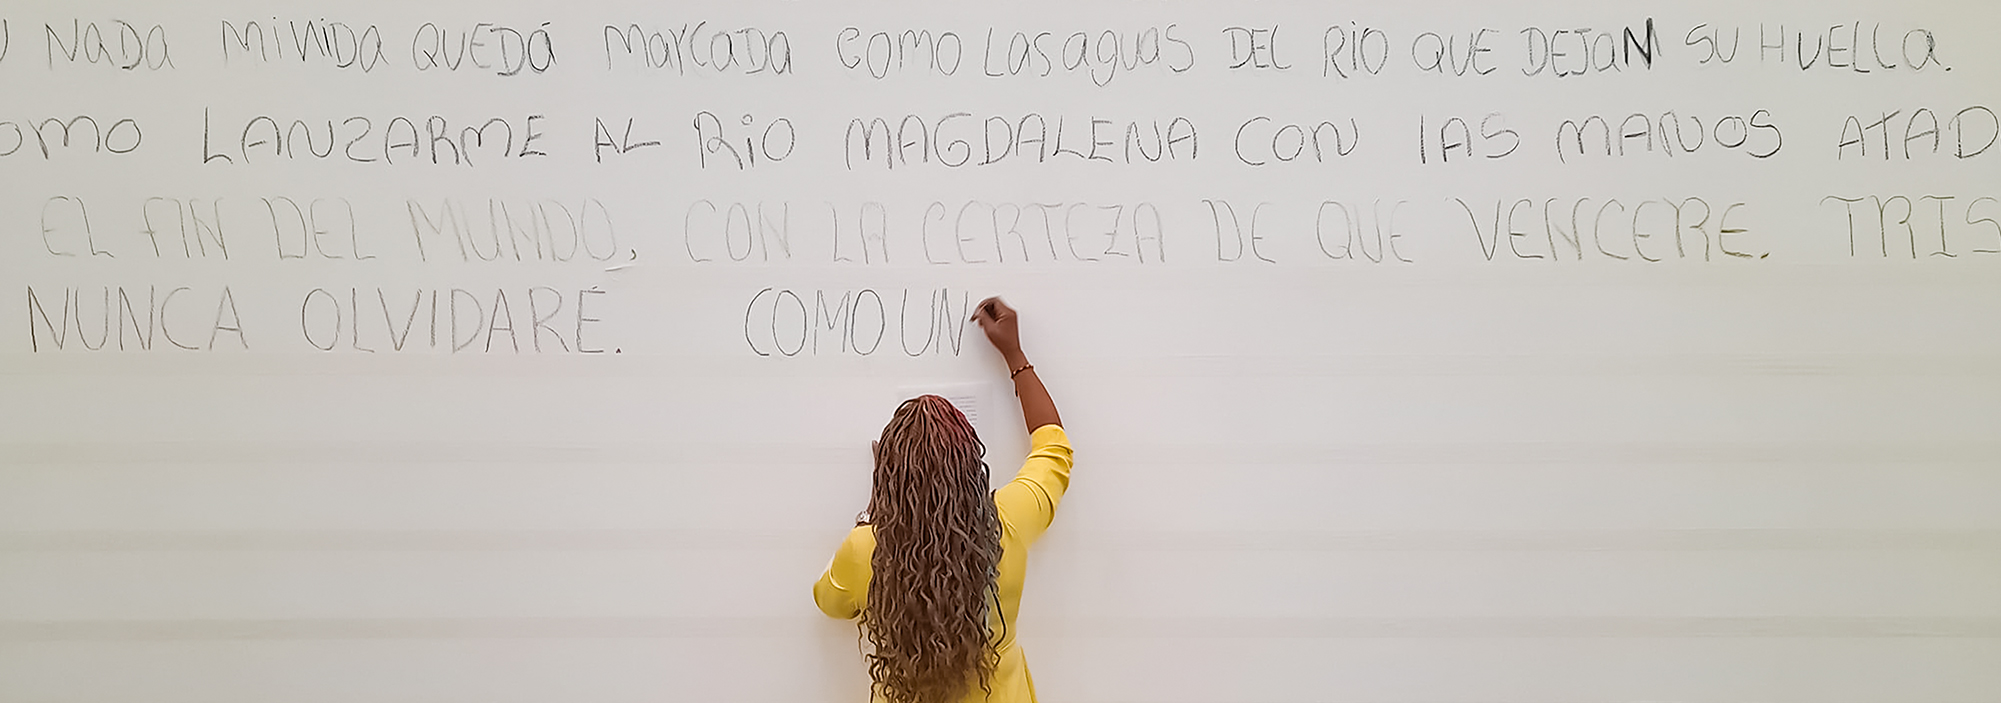 NADA MI VIDA QUEDÁ MARCADA COMO LAS AGUAS DEL RIO QUE DEJAN SU HUELLA.
OMO LANZARME AL RiO MAGDALENA CON LAS MANOS ATAD
EL FIN DEL MUNDO, CON LA CERTEZA DE QUE VENCERE. TRIS
NUNCA OLVIDARÉ. COMO UN